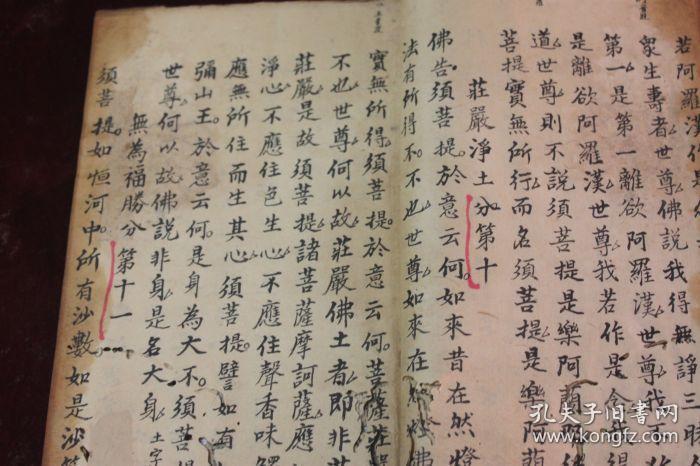 若阿羅漢作是
衆生壽者世尊佛說我得無諍三
第一是第一離欲阿羅漢世尊我
是離欲阿羅漢世尊我若作是念我得
道世尊則不說須菩提是樂阿蘭那
菩提實無所行而名須菩提是樂阿蘭
莊嚴淨土分第十
佛告須菩提於意云何如來昔在然燈
法有所得不不也世尊如來在然燈佛
實無所得須菩提於意云何菩薩莊
不也世尊何以故莊嚴佛土者即非莊
莊嚴是故須菩提諸菩薩摩訶薩應
淨心不應住色生心不應住聲香味觸
應無所住而生其心須菩提譬如有
彌山王於意云何是身為大不須菩提
世尊何以故佛說非身是名大身
無為福勝分第十一
須菩提如恒河中所有沙數如是沙等
孔夫子旧书网
www.kongfz.com